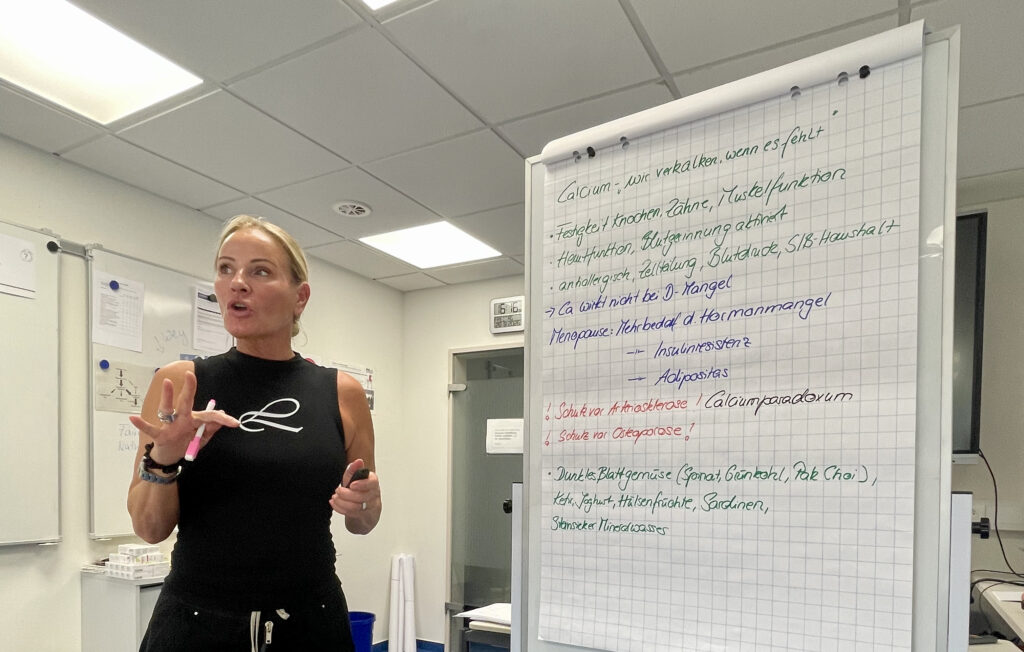 Calcium - „wir verkalken, wenn es fehlt"
• Festigkeit Knochen, Zähne, Muskelfunktion
• Hautfunktion, Blutgerinnung aktiviert
• antiallergisch, Zellteilung, Blutdruck, S/B-Haushalt
→ Ca wirkt nicht bei D-Mangel
Menopause: Mehrbedarf d. Hormonmangel
Insulinresistenz
Adipositas
! Schutz vor Arteriosklerose ! Calciumparadoxum
! Schutz vor Osteoporose !
• Dunkles Blattgemüse (Spinat, Grünkohl, Pak Choi),
Kefir, Joghurt, Hülsenfrüchte, Sardinen,
Steinsieker Mineralwasser
16:16